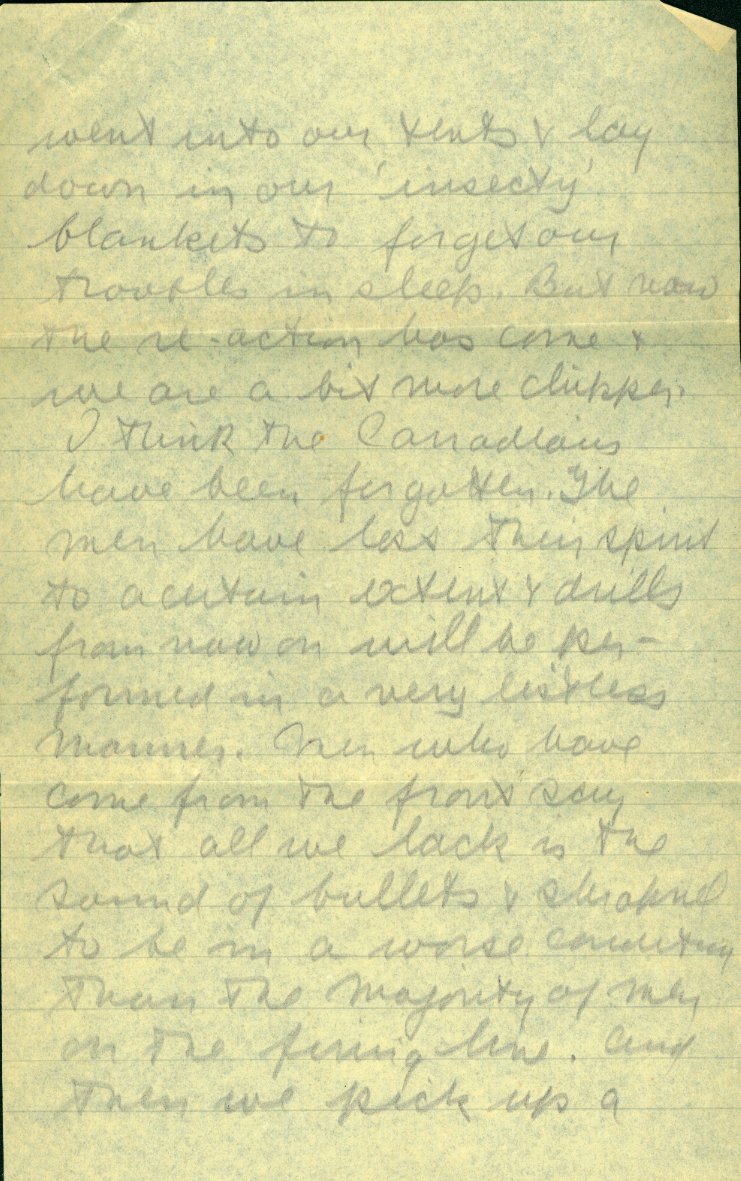 went into our tents & lay
down in our 'insecty'
blankets to forget our
troubles in sleep. But now
the re-action has come &
we are a bit more chipper.
I think the Canadians
have been forgotten. The
men have lost their spirit
to a certain extent & drills
from now on will be per-
formed in a very listless
manner. Men who have
come from the front say
that all we lack is the
sound of bullets & shrapnel
to be in a worse condition
than the majority of men
on the firing line. And
then we pick up a